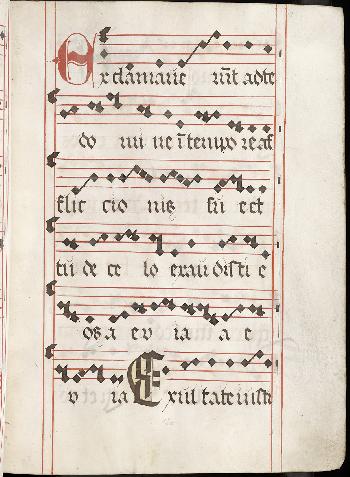 Exclamaue rūt adte
do mi ne ītempo reaf
flic cio nis su e et
tu de ce lo exau disti e
os a e v ia a e
v ia Exul tate iusti